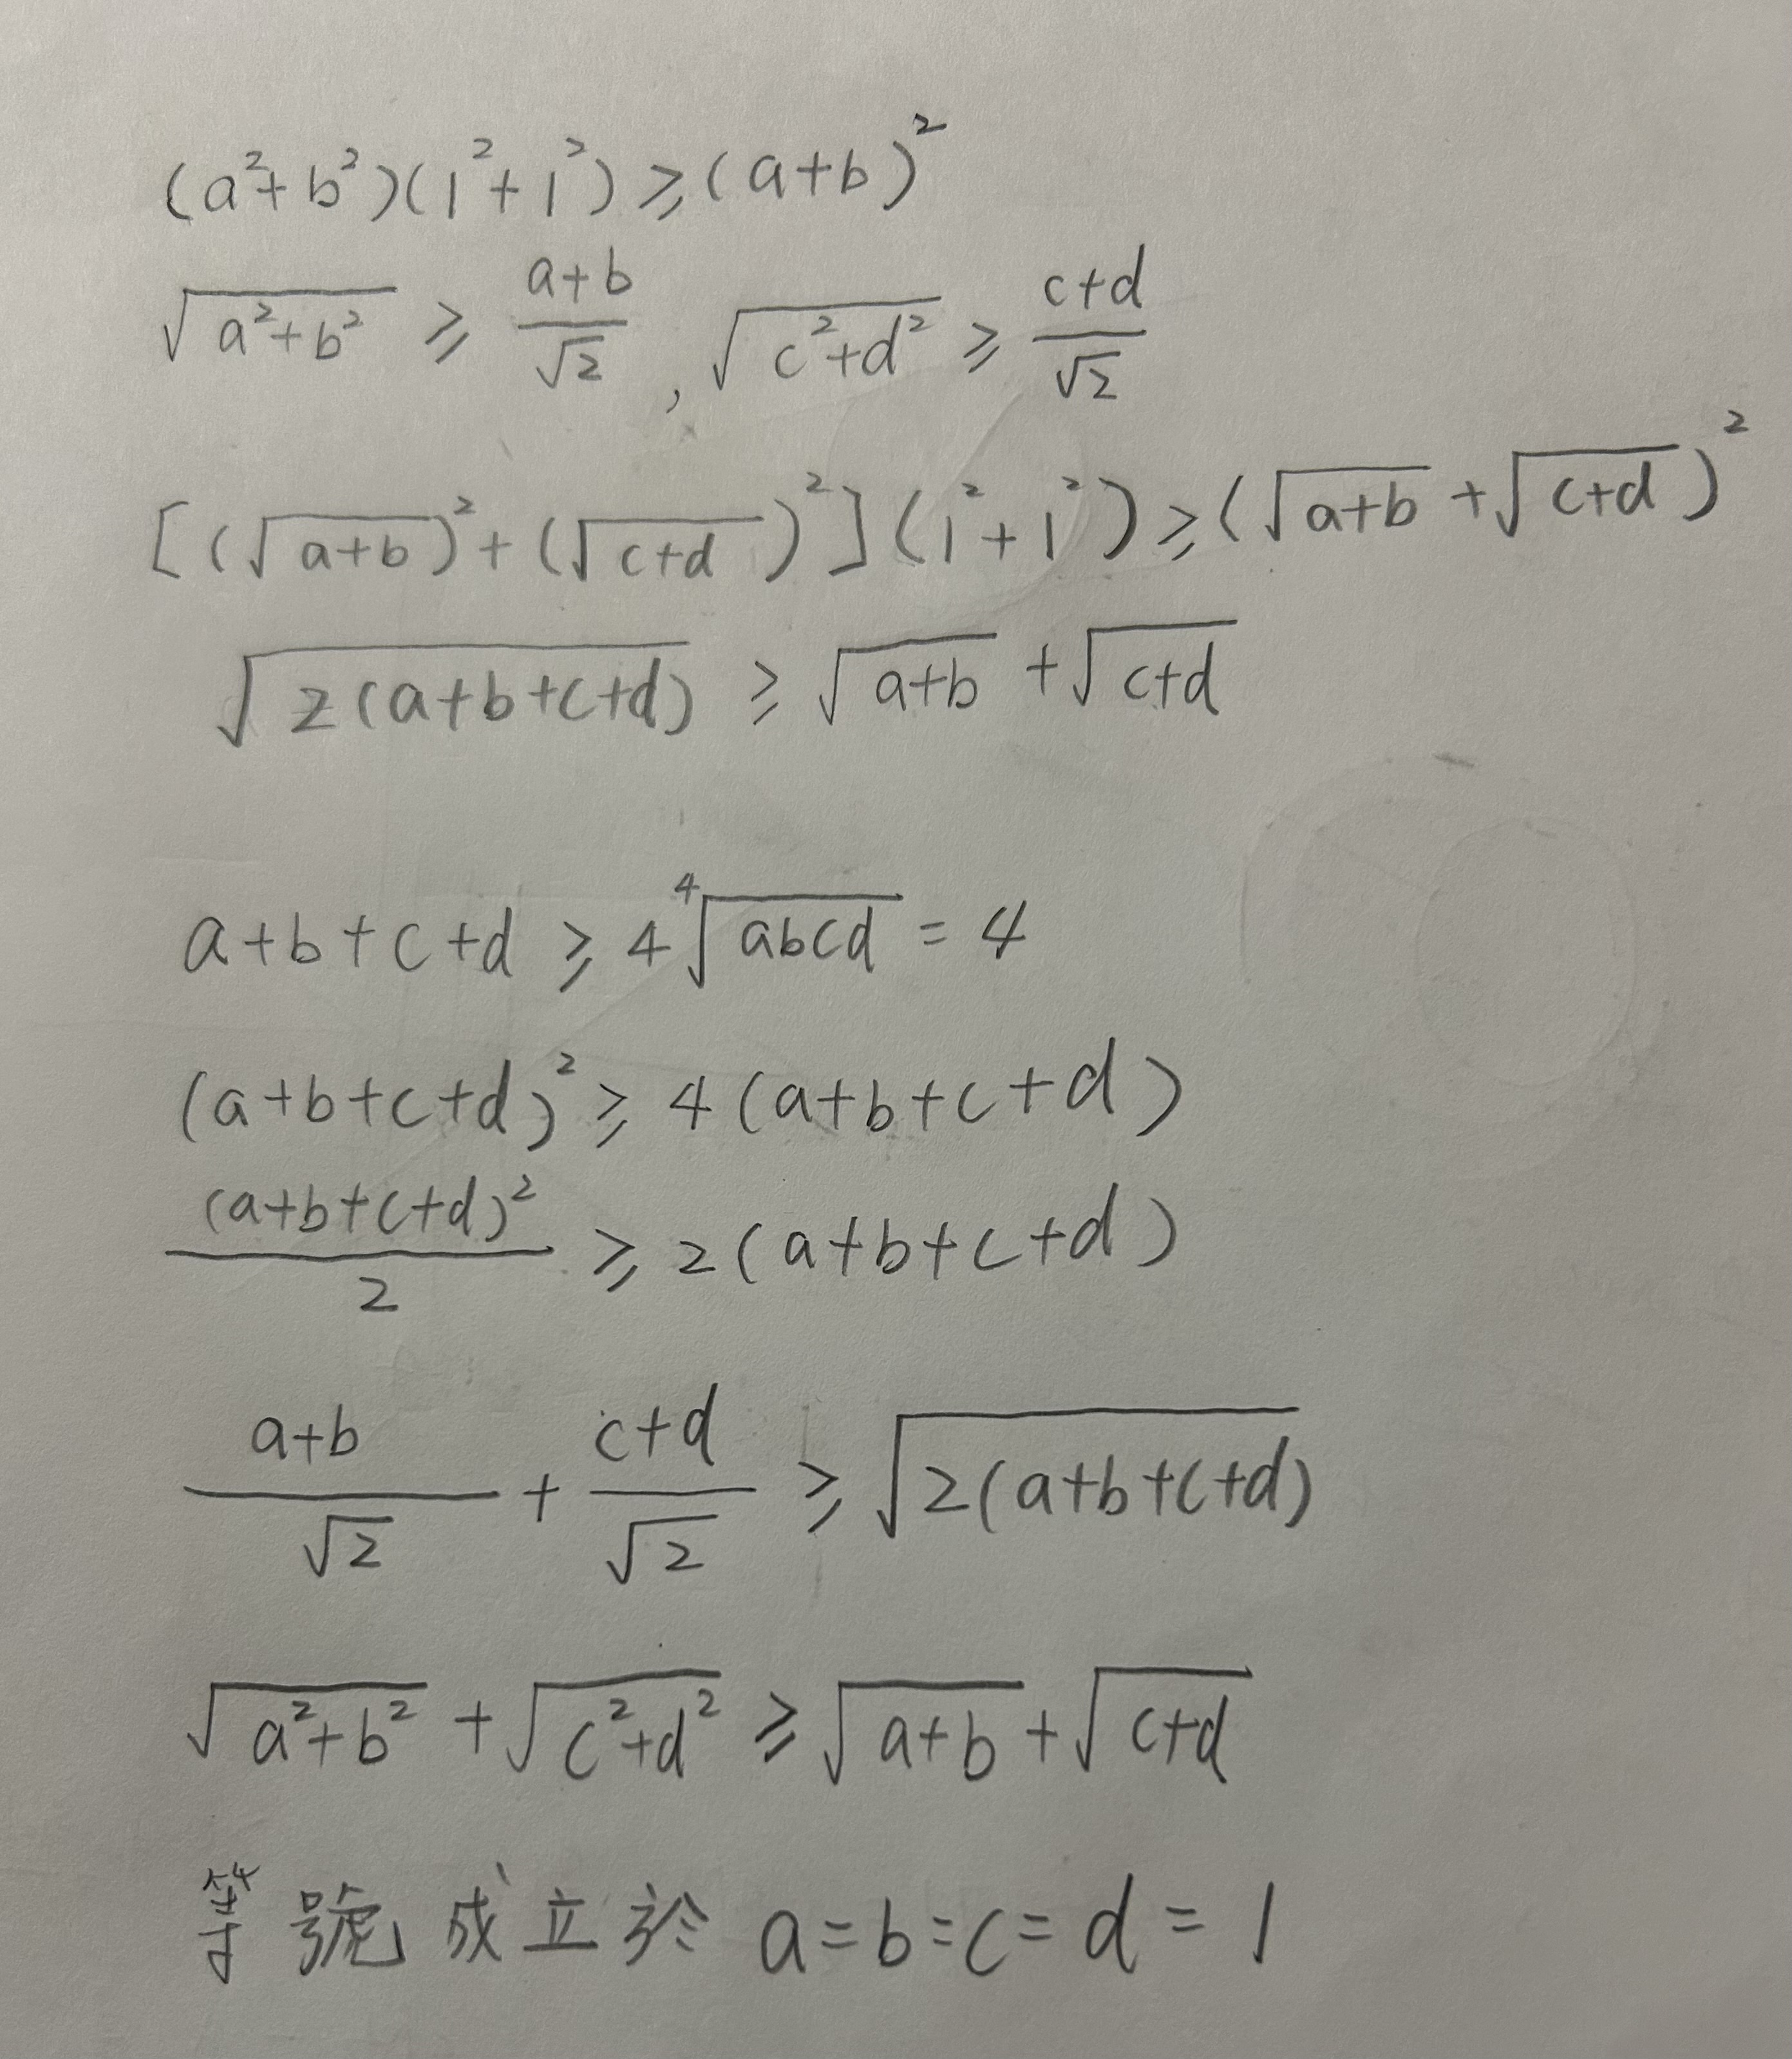 (a²+b²)(1²+1²) ≥ (a+b)²
√(a²+b²) ≥ (a+b)/√2 , √(c²+d²) ≥ (c+d)/√2
[(√(a+b))²+(√(c+d))²](1²+1²) ≥ (√(a+b)+√(c+d))²
√(2(a+b+c+d)) ≥ √(a+b)+√(c+d)
a+b+c+d ≥ 4∜(abcd) = 4
(a+b+c+d)² ≥ 4(a+b+c+d)
(a+b+c+d)²/2 ≥ 2(a+b+c+d)
(a+b)/√2 + (c+d)/√2 ≥ √(2(a+b+c+d))
√(a²+b²)+√(c²+d²) ≥ √(a+b)+√(c+d)
等號成立於 a=b=c=d=1